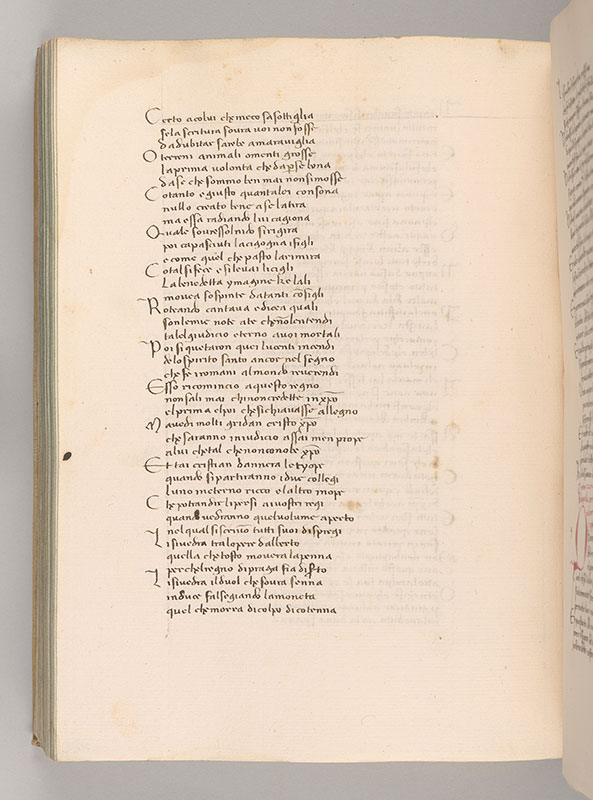 Certo acolui che meco sasottiglia
sela scritura soura uoi non fosse
da dubitar sarebe amarauiglia
O terreni animali o menti grosse
la prima uolonta che da per se bona
da se che sommo ben mai non si mosse
Cotanto e giusto quantalei consona
nullo creato bene a se la tira
ma essa radiando lui cagiona
Quale souressolnido si rigira
poi capasciuti la cigogna i figli
e come quel che pasto la rimira
Cotal si fece e si leuai li cigli
La benedetta ymagine che lali
mouea sospinte da tanti consigli
Roteando cantaua e dicea quali
son le mie note a te che nolentendi
tal el giudicio eterno a uoi mortali
Poi si quetaron quei lucenti incendi
delo spirito santo ancor nel segno
che fe i romani al mondo reuerendi
Esso ricomincio a questo regno
non sali mai chi non credette in xpo
el prima el poi che si chiauasse allegno
Ma uedi molti gridan cristo xpo
che saranno in iudicio assai men prope
a lui che tal che non conobe xpo
Et tai cristian dannera letyope
quando si partiranno i due collegi
luno in eterno ricco e laltro inope
Che potran dir li persi ai uostri regi
quando uedranno quel uolume aperto
nel qual si scriuon tutti suoi dispregi
Li si uedra tra lopere dalberto
quella che tosto mouera la penna
per chel regno di praga fia diserto
Li si uedra il duol che soura senna
induce falsegiando la moneta
quel che morra di colpo di cotenna